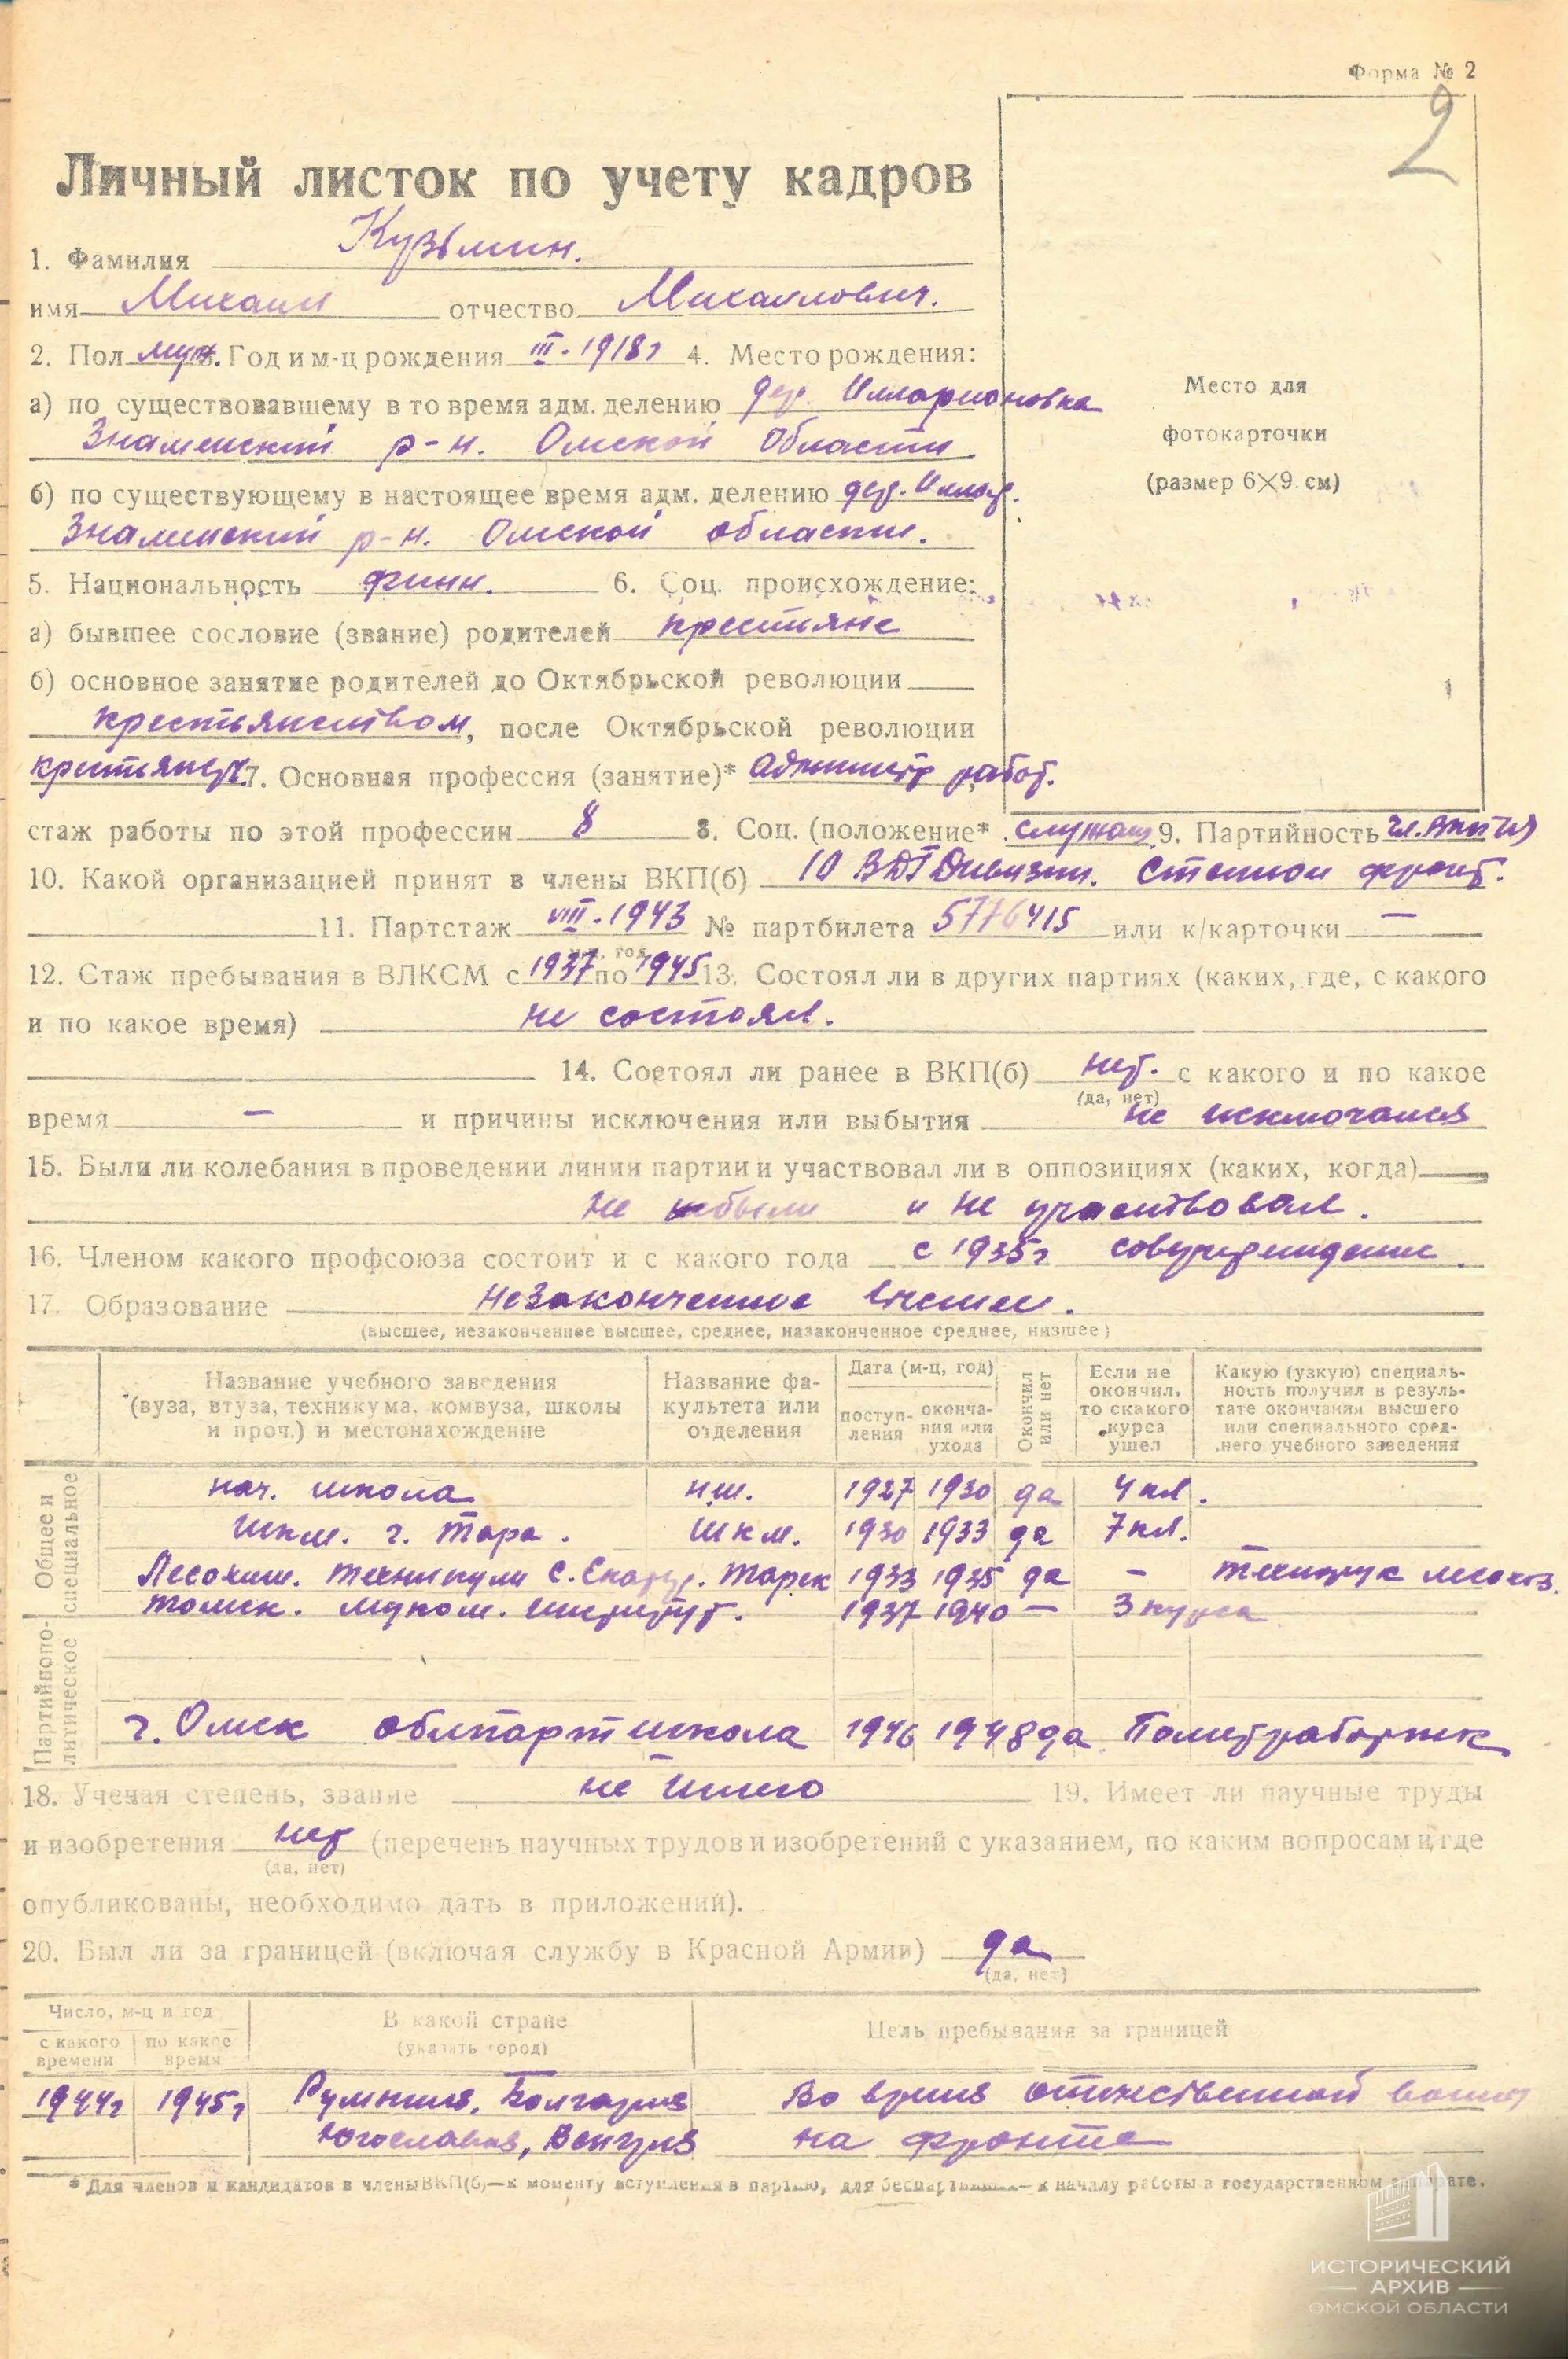 Форма № 2
2
Личный листок по учету кадров
1. Фамилия Кузьмин.
имя Михаил отчество Михайлович.
2. Пол муж. 3. Год и м-ц рождения III. 1918 г 4. Место рождения:
а) по существовавшему в то время адм. делению дер. Илларионовка
Знаменский р-н. Омской области
Место для
фотокарточки
(размер 6×9 см)
б) по существующему в настоящее время адм. делению дер. Иллар.
Знаменский р-н. Омской области.
5. Национальность финн. 6. Соц. происхождение:
а) бывшее сословие (звание) родителей крестьяне
б) основное занятие родителей до Октябрьской революции
крестьянством, после Октябрьской революции
7. Основная профессия (занятие)* Администр работ.
стаж работы по этой профессии 8 8. Соц. (положение* служащ. 9. Партийность чл. ВКП(б)
10. Какой организацией принят в члены ВКП(б) 10 ВДГ Дивизии. Степной фронт.
11. Партстаж VIII. 1943 № партбилета 5776415 или к/карточки —
12. Стаж пребывания в ВЛКСМ с 1937 по 1945 13. Состоял ли в других партиях (каких, где, с какого
и по какое время) не состоял.
14. Состоял ли ранее в ВКП(б) нет. с какого и по какое
(да, нет)
время — и причины исключения или выбытия не исключался
15. Были ли колебания в проведении линии партии и участвовал ли в оппозициях (каких, когда)
не были и не участвовал.
16. Членом какого профсоюза состоит и с какого года с 1935 г совучреждение.
17. Образование незаконченное высшее.
(высшее, незаконченнее высшее, среднее, назаконченное среднее, низшее)
Название учебного заведения
(вуза, втуза, техникума, комвуза, школы
и проч.) и местонахождение
Название фа-
культета или
отделения
Дата (м-ц, год)
поступ-
ления
оконча-
ния или
ухода
Окончил
или нет
Если не
окончил,
то с какого
курса
ушел
Какую (узкую) специаль-
ность получил в резуль-
тате окончания высшего
или специального сред-
него учебного заведения
Общее и
специальное
нач. школа н.ш. 1927 1930 да 4 кл.
Шкм. г. Тара. Шкм. 1930 1933 да 7 кл.
Лесохим. техникум с. Екатер. Тарск 1933 1935 да — технорук
Томск. муком. институт. 1937 1940 — 3 курса
Партийнопо-
литическое
г. Омск облпартшкола 1946 1948 да Политработник
18. Ученая степень, звание не имею 19. Имеет ли научные труды
и изобретения нет (перечень научных трудов и изобретений с указанием, по каким вопросам и где
(да, нет)
опубликованы, необходимо дать в приложении).
20. Был ли за границей (включая службу в Красной Армии) да
(да, нет)
Число, м-ц и год
с какого
времени
по какое
время
В какой стране
(указать город)
Цель пребывания за границей
1944 г 1945 г Румыния. Болгария Во время отечественной войны
Югославия, Венгрия на фронте
* Для членов и кандидатов в члены ВКП(б)—к моменту вступления в партию, для беспартийных—к началу работы в государственном аппарате.
ИСТОРИЧЕСКИЙ
АРХИВ
ОМСКОЙ ОБЛАСТИ